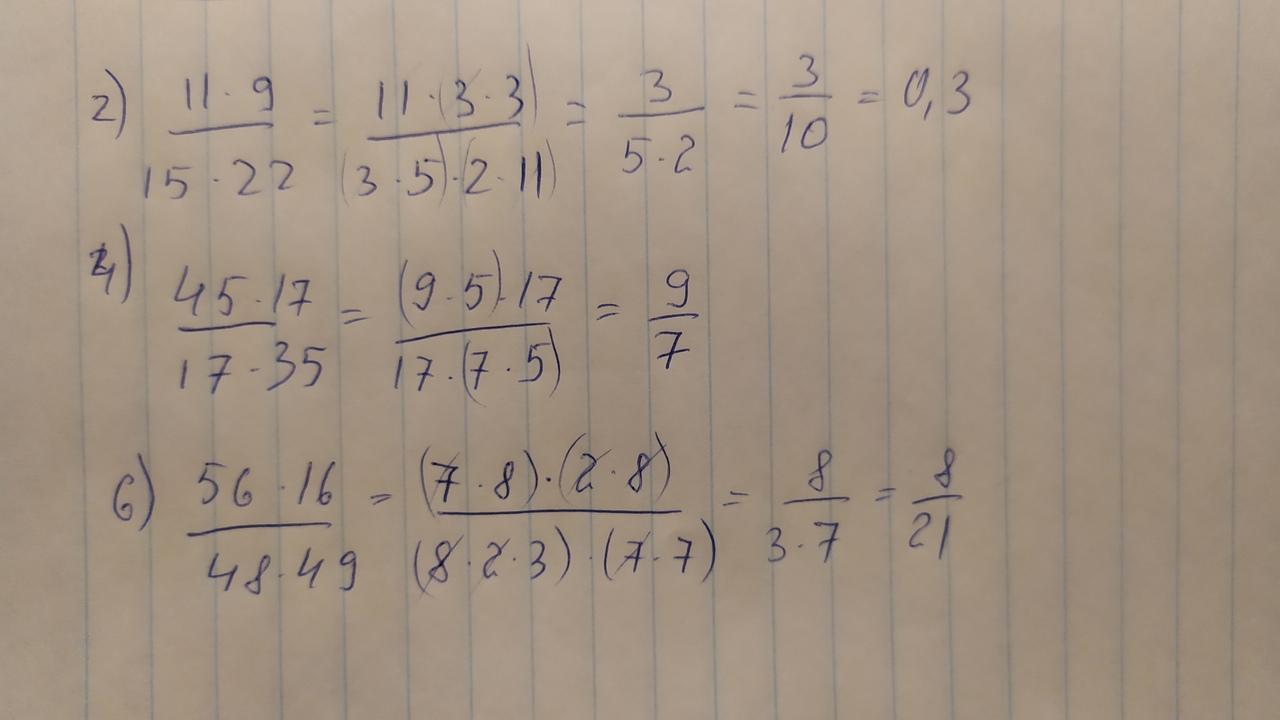 2) \frac{11 \cdot 9}{15 \cdot 22} = \frac{11 \cdot (3 \cdot 3)}{(3 \cdot 5) \cdot (2 \cdot 11)} = \frac{3}{5 \cdot 2} = \frac{3}{10} = 0,3
4) \frac{45 \cdot 17}{17 \cdot 35} = \frac{(9 \cdot 5) \cdot 17}{17 \cdot (7 \cdot 5)} = \frac{9}{7}
6) \frac{56 \cdot 16}{48 \cdot 49} = \frac{(7 \cdot 8) \cdot (2 \cdot 8)}{(8 \cdot 2 \cdot 3) \cdot (7 \cdot 7)} = \frac{8}{3 \cdot 7} = \frac{8}{21}